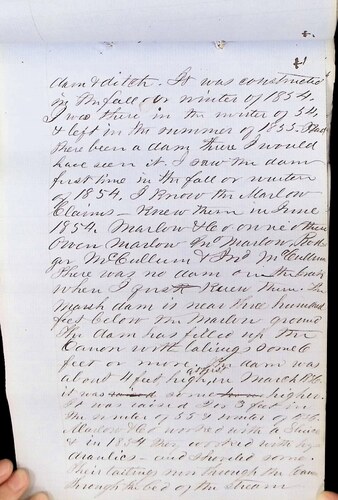 dam & ditch. It was constructed
in the fall or winter of 1854.
I was there in the winter of 54
& left in the summer of 1855. Had
there been a dam there I would
have seen it. I saw the dam
first time in the fall or winter
of 1854. I know the Marlow
Claims - Knew them in June
1854. Marlow & Co owned them
Owen Marlow Jno Marlow
McCullum & Jno McCullum
There was no dam on the
when I first Knew them. The
Marsh dam is near three hundred
feet below the Marlow ground
The dam has filled up the
Canon with tailings some 6
feet or more. The dam was
about 4 feet high at first in March
it was some higher.
It was raised 2 or 3 feet in
the winter of 55 & winter of
Marlow & Co worked with a Sluice
& in 1854 they worked with hy-
draulics - and sluiced some.
Their tailings run through the
through the bed of the stream